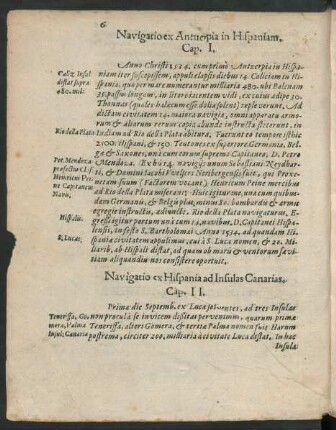 6
Navigatio ex Antuerpia in Hispaniam.
Cap. I.
Anno Christi 1534. cum primò Antuerpia in Hispa-
niam iter suscepissem, appuli elapsis diebus 14 Calicium in Hi-
spania, quò per mare numerantur milliaria 480. ubi Balenam
35. passus longam, in litore iacentem vidi, ex cuius adipe 30.
Thunnas (quales halecum esse dolia solent) replevérunt. Ad
dictam civitatem 14. maiora navigia, omni apparatu armo-
rum & aliarum rerum copia abunde instructa steterunt, in
Indiam ad Rio della Plata abitura. Fuerunt eo tempore isthic
2500. Hispani, & 150. Teutones ex superiore Germania, Bel-
gio & Saxones, unà cum eorum supremo Capitaneo, D. Petro
à Mendoza. Ex his 14. navigiis unum Sebastiani Neydhar-
ti, & Domini Iacobi Welsers Norbergensis fuit, qui Pro-
metam suum (Factorem vocant) Henricum Peime mercibus
ad Rio della Plata miserant: Huic ego iunctus, una cum quibus-
dam Germanis, & Belgis plus, minus 80. bombardis & armis
egregie instructis, adiunctus. Rio della Plata navigaturus. E-
gressi igitur portum una cum 14. navibus, D. Capitanei Hispa-
lensis, in festo S. Bartholomæi Anno 1534. ad quandam Hi-
spania civitatem appulimus, cui S. Lucas nomen, & 20. Mi-
liarib. ab Hispali distat, ad quam ob mari & ventorum sævi-
tiam aliquandiu nos consistere oportuit.
Navigatio ex Hispania ad Insulas Canarias.
Cap. II.
Prima die Septemb. ex Luca solventes, ad tres Insulas
non procul à se invicem dissitas pervenimus, quarum prima
Teneressa, altera Gomera, & tertia Palma nomen fuit. Harum
postrema, circiter 200. miliaria à civitate Luca distat. In hac
Insula
Caliz Insul.
distat supra
480. mil.
Rio della Plata
Pet. Mendoza
Henricus Pei-
Hispalis.
S. Lucas.
Teneressa, Go-
mera, Palma
Insul. Canaria